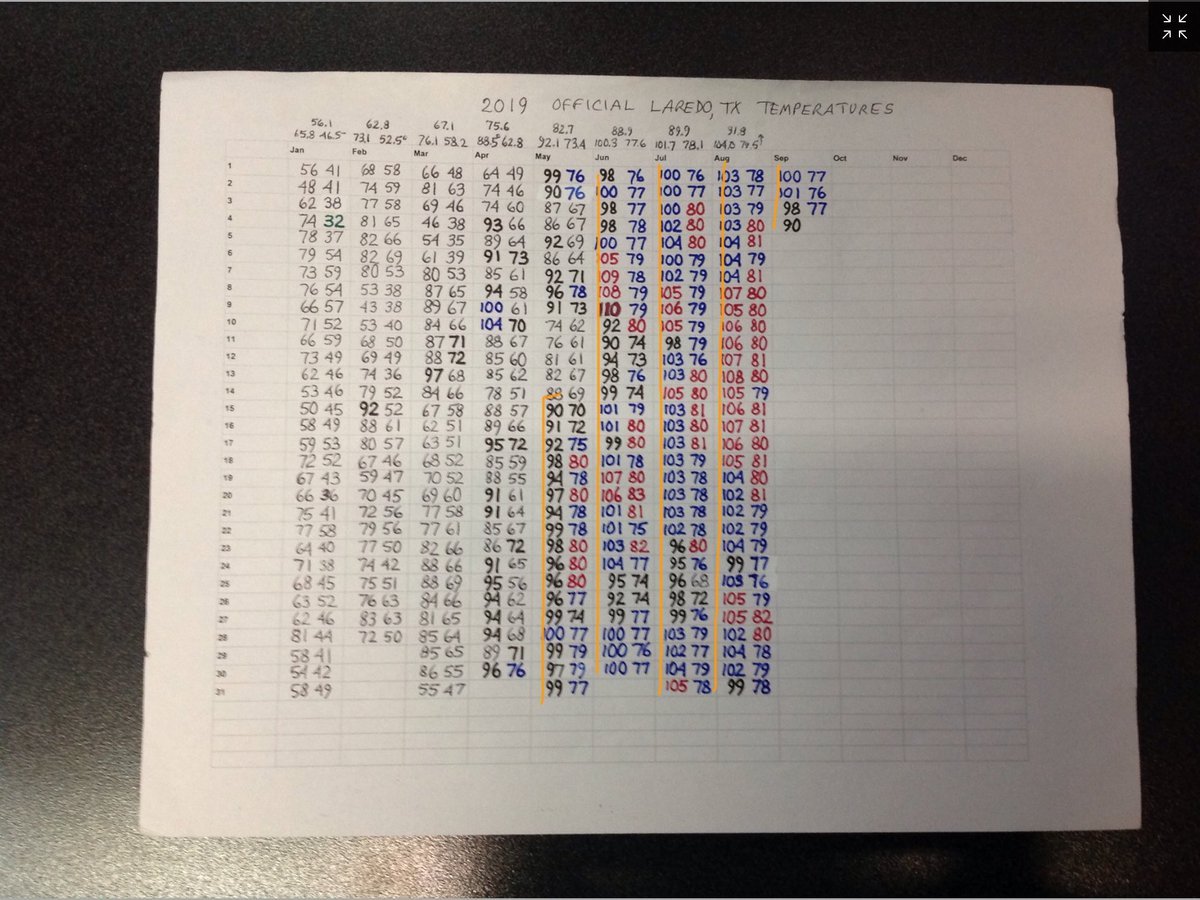 2019 OFFICIAL LAREDO, TX TEMPERATURES
56.1 62.8 67.1 75.6 82.7 88.9 89.9 91.8
65.8 46.5 73.1 52.5 76.1 58.2 88.5 62.8 92.1 73.4 100.3 77.6 101.7 78.1 104.0 79.5↑
Jan Feb Mar Apr May Jun Jul Aug Sep Oct Nov Dec
1 56 41 68 58 66 48 64 49 99 76 98 76 100 76 103 78 100 77
2 48 41 74 59 81 63 74 46 90 76 100 77 100 77 103 77 101 76
3 62 38 77 58 69 46 74 60 87 67 98 77 100 80 103 79 98 77
4 74 32 81 65 46 38 93 66 86 67 98 78 102 80 103 80 90
5 78 37 82 66 54 35 89 64 92 69 100 77 104 80 104 81
6 79 54 82 69 61 39 91 73 86 64 105 79 100 79 104 79
7 73 59 80 53 80 53 85 61 92 71 109 78 102 79 104 81
8 76 54 53 38 87 65 94 58 96 78 108 79 105 79 107 80
9 66 57 43 38 89 67 100 61 91 73 110 79 106 79 105 80
10 71 52 53 40 84 66 104 70 74 62 92 80 105 79 106 80
11 66 59 68 50 87 71 88 67 76 61 90 74 98 79 106 80
12 73 49 69 49 88 72 85 60 81 61 94 73 103 76 107 81
13 62 46 74 36 97 68 85 62 82 67 98 76 103 80 108 80
14 53 46 79 52 84 66 78 51 88 69 99 74 105 80 105 79
15 50 45 92 52 67 58 88 57 90 70 101 79 103 81 106 81
16 58 49 88 61 62 51 89 66 91 72 101 80 103 80 107 81
17 59 53 80 57 63 51 95 72 92 75 99 80 103 81 106 80
18 72 52 67 46 68 52 85 59 98 80 101 78 103 79 105 81
19 67 43 59 47 70 52 88 55 94 78 107 80 103 78 104 80
20 66 36 70 45 69 60 91 61 97 80 106 83 103 78 102 81
21 75 41 72 56 77 58 91 64 94 78 101 81 103 78 102 79
22 77 58 79 56 77 61 85 67 99 78 101 75 102 78 102 79
23 64 40 77 50 82 66 86 72 98 80 103 82 96 80 104 79
24 71 38 74 42 88 66 91 65 96 80 104 77 95 76 99 77
25 68 45 75 51 88 69 95 56 96 80 95 74 96 68 103 76
26 63 52 76 63 84 66 94 62 96 77 92 74 98 72 105 79
27 62 46 83 63 81 65 94 64 99 74 99 77 99 76 105 82
28 81 44 72 50 85 64 94 68 100 77 100 77 103 79 102 80
29 58 41 85 65 89 71 99 79 100 76 102 77 104 78
30 54 42 86 55 96 76 97 79 100 77 104 79 102 79
31 58 49 55 47 99 77 105 78 99 78